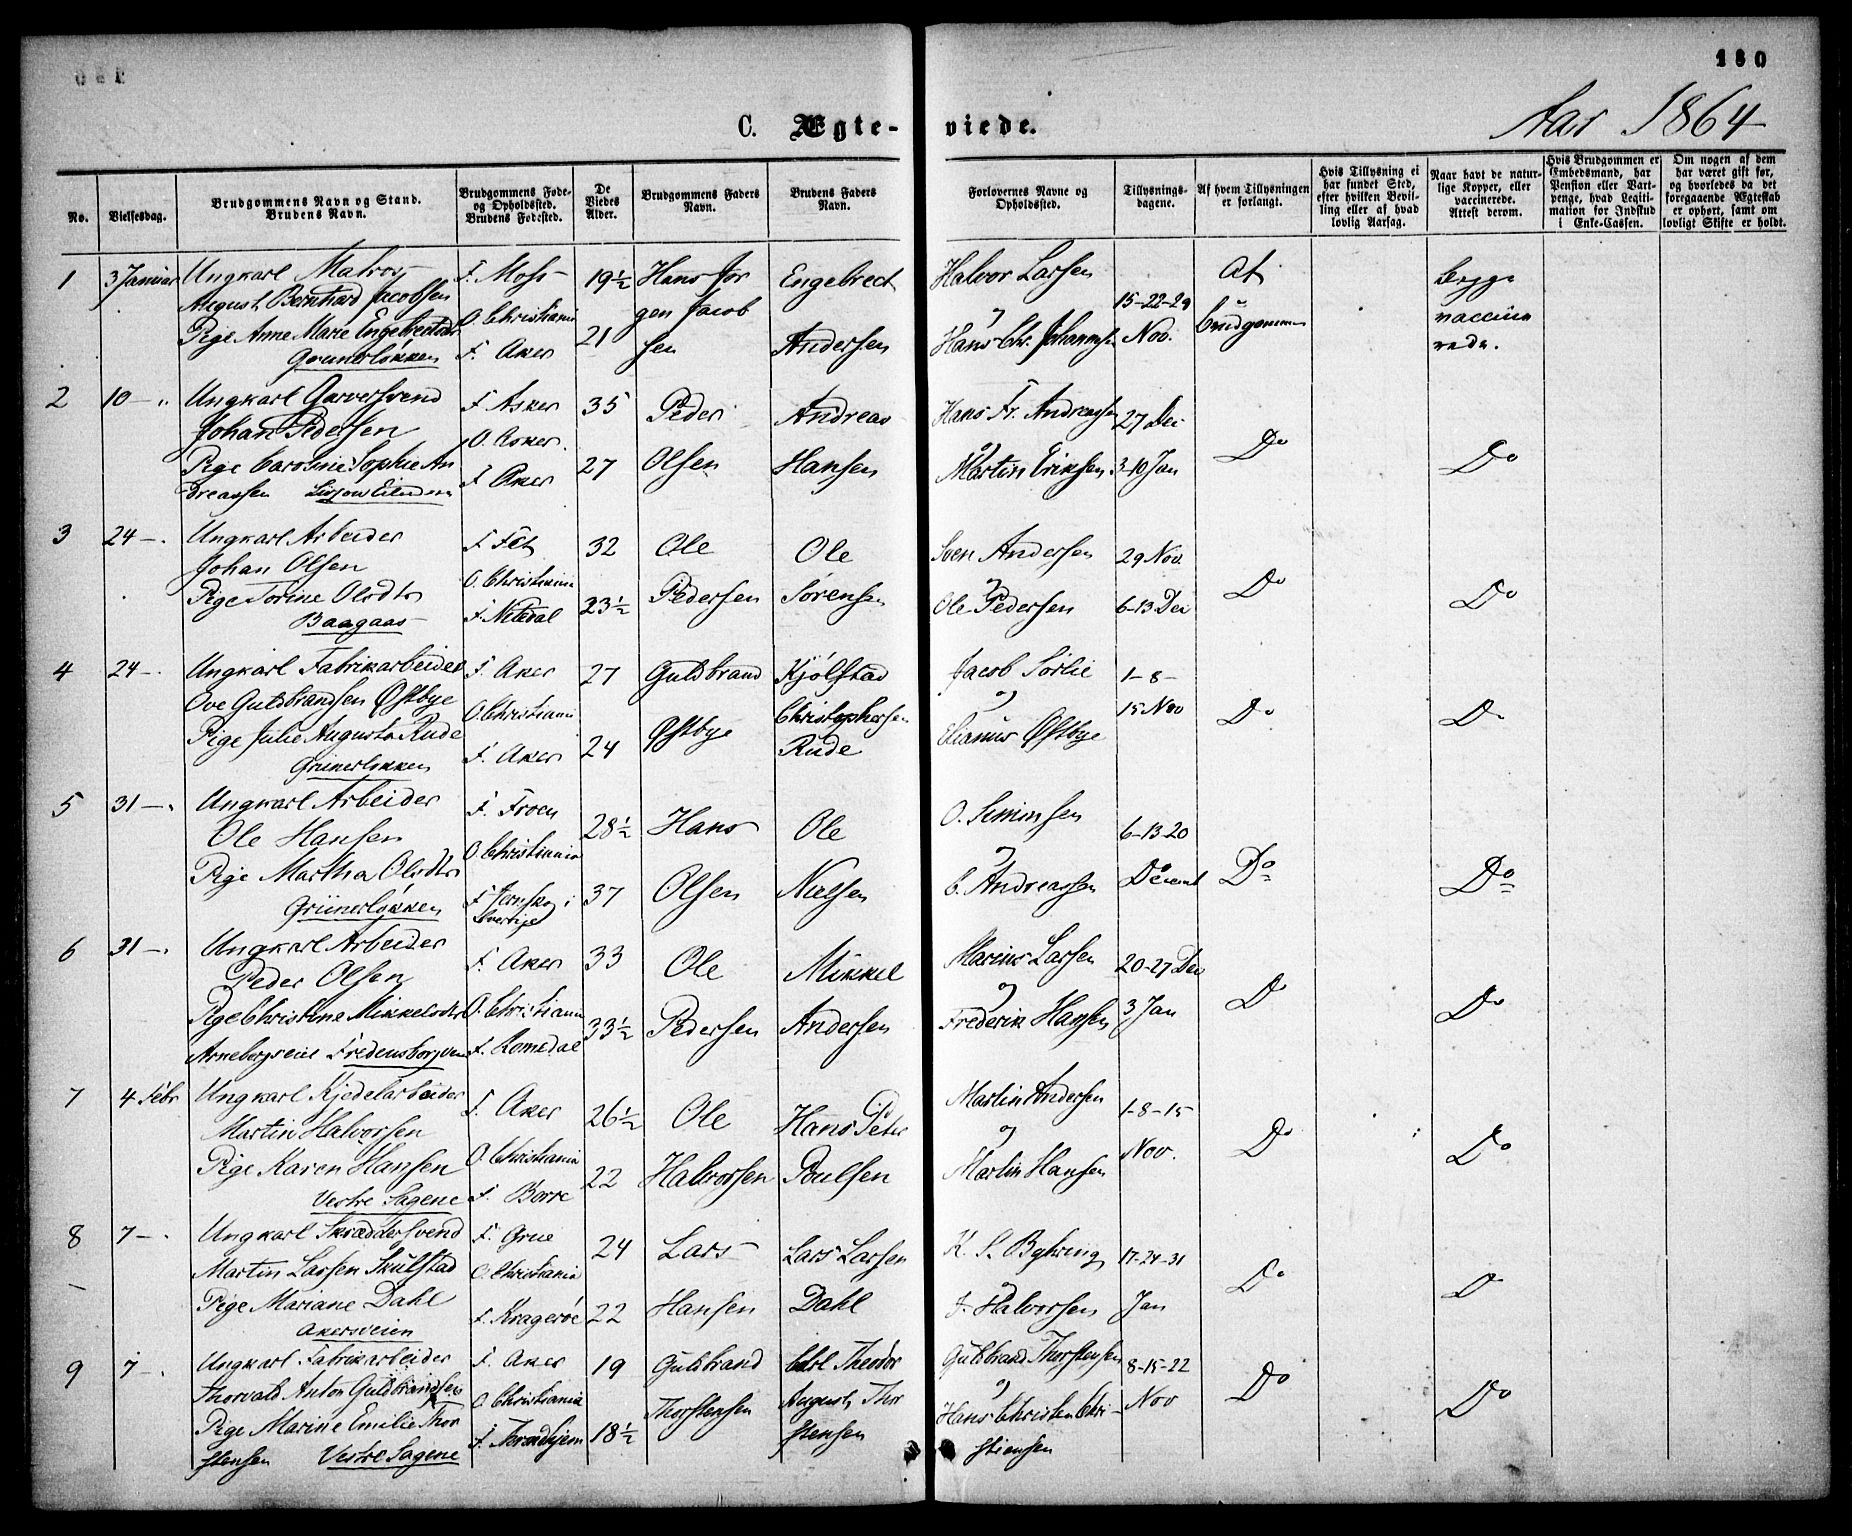 180
Aar 1864
C. Ægte-viede.
No. Vielsesdag. Brudgommens Navn og Stand. Brudens Navn. Brudgommens Føde- og Opholdssted. Brudens Fødested. De Viedes Alder. Brudgommens Faders Navn. Brudens Faders Navn. Forlovernes Navne og Opholdssted. Tillysnings-dagene. Af hvem Tillysningen er forlangt. Hvis Tillysning ei har fundet Sted, efter hvilken Bevilling eller af hvad lovlig Aarsag. Naar havt de naturlige Kopper, eller vaccinerede. Attest derom. Hvis Brudgommen er Embedsmand, har Pension eller Vartpenge, hvad Legitimation for Indskud i Enke-Cassen. Om nogen af dem har været gift før, og hvorledes da det foregaaende Ægteskab er ophørt, samt om lovligt Skifte er holdt.
1 3 Januar Ungkarl Matros F. Moss 19½ Hans Jør Engebrect Halvor Larsen Af begge
August Bernhard Jacobsen O Christiania gen Jacob og 15-22-29 brudgommen vaccine
Pige Anne Marie Engebretsdtr F. Aker 21 sen Andersen Hans Chr. Johannesen Nov. rede.
Grünerløkken
2 10 — Ungkarl Garversvend F Asker 35 Peder Andreas Hans Fr. Andreassen 27 Dec
Johan Pedersen O. Asker og Do Do
Pige Caroline Sophie An F Aker 27 Olsen Hansen Martin Eriksen 3-10 Jan
dreassen
3 24 — Ungkarl Arbeider F Fet 32 Ole Ole Sven Andersen 29 Nov.
Johan Olsen O. Christiania og Do Do
Pige Torine Olsdtr F. Nitedal 23½ Pedersen Sørensen Ole Pedersen 6-13 Dec
Baagaas
4 24 — Ungkarl Fabrikarbeider F. Aker 27 Guldbrand Kjølstad Jacob Sørlie 1-8-
Ove Guldbrandsen Østbye O. Christiania Christophersen og 15 Nov Do Do
Pige Julie Augusta Rude F. Aker 24 Østbye Rude Østbye
Grünerløkken
5 31 — Ungkarl Arbeider F. Froen 28½ Hans Ole O. Simensen 6-13-20
Ole Hansen O. Christiania og Do Do
Pige Martha Olsdtr F. Jernskog i 37 Olsen Nielsen C. Andreassen Decemb
Grünerløkken Sverrige
6 31 — Ungkarl Arbeider F. Aker 33 Ole Mikkel Marius Larsen 20-27 Dec
Peder Olsen O. Christiania og Do Do
Pige Christine Mikkelsdtr F. Romedal 33½ Pedersen Andersen Frederik Hansen 3 Jan
Arnebergseie Fredensborgveien
7 4 Febr Ungkarl Kjedelarbeider F. Aker 26½ Ole Hans Peter Martin Andersen 1-8-15
Martin Halvorsen O. Christiania og Do Do
Pige Karen Hansen F. Borre 22 Halvorsen Poulsen Martin Hansen Nov.
Vestre Sagene
8 7 — Ungkarl Skræddersvend F. Grue 24 Lars Lars Larsen K. S. Byhring 17-24-31
Martin Larsen Skulstad O. Christiania og Do Do
Pige Mariane Dahl F. Kragerøe 22 Hansen Dahl J. Halvorsen Jan
Akersveien
9 7 — Ungkarl Fabrikarbeider F. Aker 19 Gulbrand Carl Theodor Gulbrand Thorstensen 8-15-22
Thorvald Anton Guldbrandsen O Christiania August Thor og Nov Do Do
Pige Marine Emilie Thor F. Throndhjem 18½ Thorstensen stensen Hans Christen Chri-
stensen Vestre Sagene stiensen